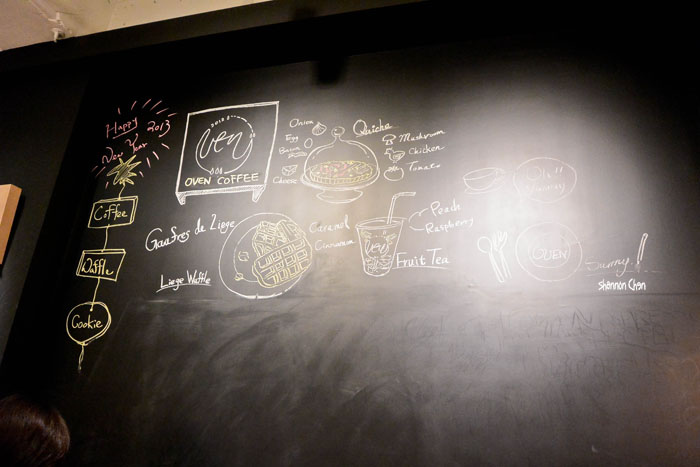 Happy 2013
New Year
Coffee
Waffle
Cookie
2013
Oven
OVEN COFFEE
Onion
Egg
Bacon
Cheese
Quiche
Mushroom
Chicken
Tomato
Gaufres de Liege
Liege Waffle
Caramel
Cinnamon
Oven
Peach
Raspberry
Fruit Tea
Oh!!
Yummy
OVEN
shannon Chen